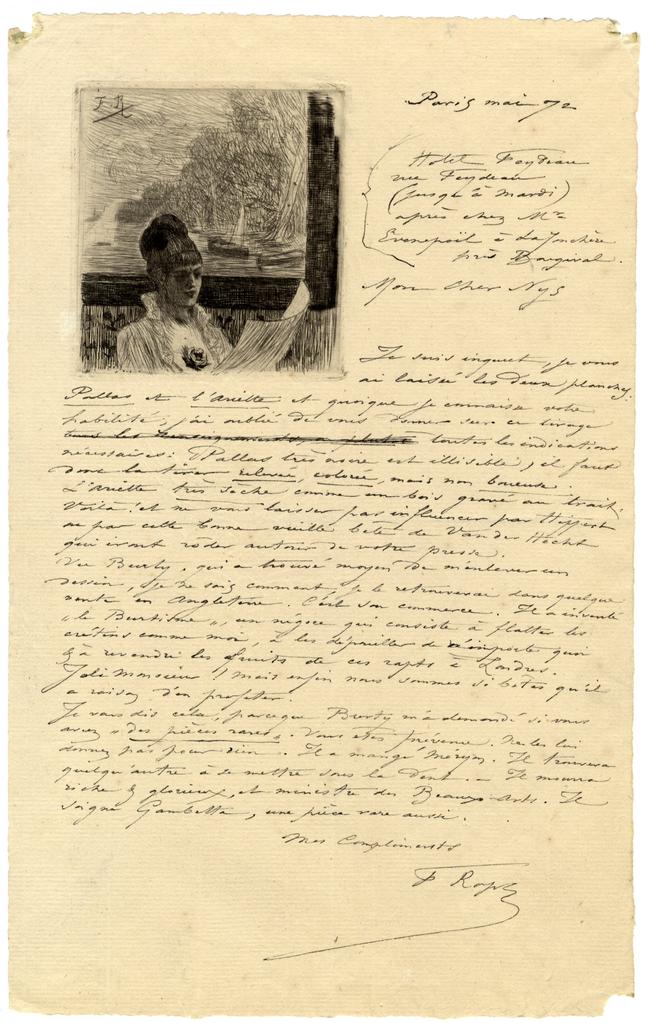 F. R.
Paris mai 72
Hotel Feydeau
rue Feydeau
(jusqu'à mardi)
après chez Mr
Evenepoël à La Jonchère
près Bougival.
Mon Cher Nys
Je suis inquiet, je vous
ai laissé les deux planches
Pallas et l'ariette et quoique je connaisse votre
habilité, j'ai oublié de vous donner sur ce tirage
toutes les indications
nécessaires: Pallas très noire est illisible, il faut
donc la tirer relevée, colorée, mais non boueuse.
L'ariette très sèche comme un bois gravé au trait.
Voilà! et ne vous laisser pas influencer par Hippert
ou par cette bonne vieille bête de Van der Hecht
qui iront rôder autour de votre presse.
Vu Burty, qui a trouvé moyen de m'enlever un
dessin, je ne sais comment, je le retrouverai dans quelque
vente en Angleterre. C'est son commerce. Il a inventé
"le Burtisme", un négoce qui consiste à flatter les
crétins comme moi, à les dépouiller de n'importe quoi
& à revendre les fruits de ces rapts à Londres.
Joli monsieur! mais enfin nous sommes si bêtes qu'il
a raison d'en profiter.
Je vous dis cela, parceque Burty m'a demandé si vous
aviez "des pièces rares". Vous êtes prévenu. Ne les lui
donnez pas pour rien. Il a mangé Méryon. Il trouvera
quelqu'autre à se mettre sous la Dent. – Il mourra
riche & glorieux, et ministre des Beaux-Arts. Il
soigne Gambetta, une pièce rare aussi.
Mes Compliments
F Rops